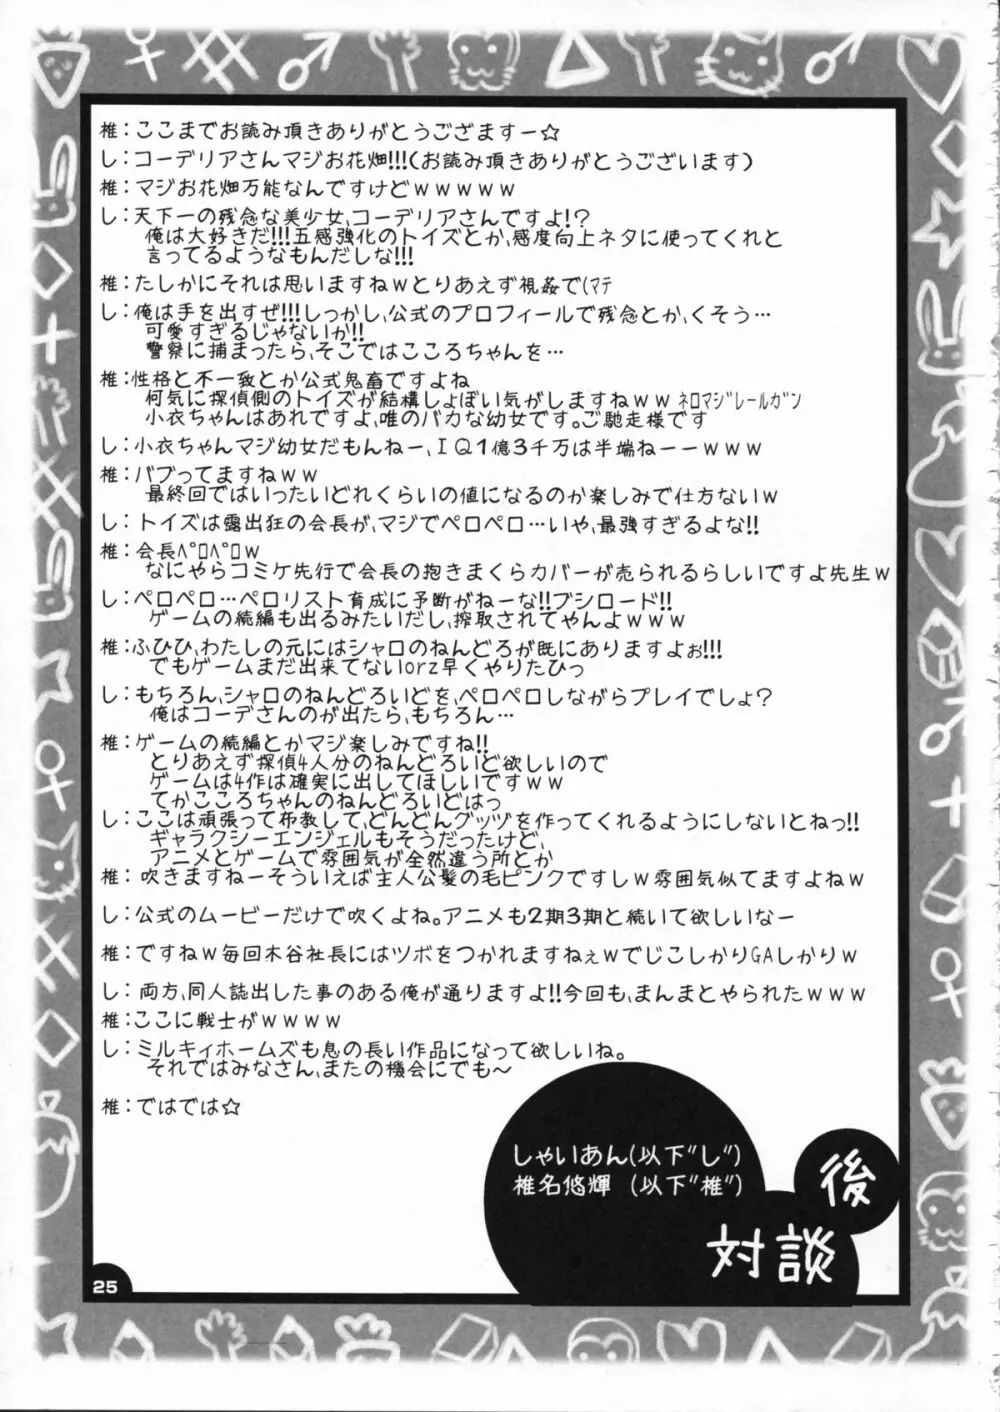 椎：ここまでお読み頂きありがとうござますー☆
し：コーデリアさんマジお花畑!!!(お読み頂きありがとうございます)
椎：マジお花畑万能なんですけどｗｗｗｗｗ
し：天下一の残念な美少女、コーデリアさんですよ!?
俺は大好きだ!!!五感強化のトイズとか、感度向上ネタに使ってくれと
言ってるようなもんだしな!!!
椎：たしかにそれは思いますねｗとりあえず視姦で(ﾏﾃ
し：俺は手を出すぜ!!!しっかし、公式のプロフィールで残念とか、くそう…
可愛すぎるじゃないか!!
警察に捕まったら、そこではこころちゃんを…
椎：性格と不一致とか公式鬼畜ですよね
何気に探偵側のトイズが結構しょぼい気がしますねｗｗ ﾈﾛﾏｼﾞﾚｰﾙｶﾞﾝ
小衣ちゃんはあれですよ、唯のバカな幼女です。ご馳走様です
し：小衣ちゃんマジ幼女だもんねー、ＩＱ１億３千万は半端ねーーｗｗｗ
椎：バブってますねｗｗ
最終回ではいったいどれくらいの値になるのか楽しみで仕方ないｗ
し：トイズは露出狂の会長が、マジでペロペロ…いや、最強すぎるよな!!
椎：会長ﾍﾟﾛﾍﾟﾛｗ
なにやらコミケ先行で会長の抱きまくらカバーが売られるらしいですよ先生ｗ
し：ペロペロ…ペロリスト育成に予断がねーな!!ブシロード!!
ゲームの続編も出るみたいだし、搾取されてやんよｗｗｗ
椎：ふひひ、わたしの元にはシャロのねんどろが既にありますよぉ!!!
でもゲームまだ出来てないorz早くやりたひっ
し：もちろん、シャロのねんどろいどを、ペロペロしながらプレイでしょ?
俺はコーデさんのが出たら、もちろん…
椎：ゲームの続編とかマジ楽しみですね!!
とりあえず探偵4人分のねんどろいど欲しいので
ゲームは4作は確実に出してほしいですｗｗ
てかこころちゃんのねんどろいどはっ
し：ここは頑張って布教して、どんどんグッヅを作ってくれるようにしないとねっ!!
ギャラクシーエンジェルもそうだったけど、
アニメとゲームで雰囲気が全然違う所とか
椎：吹きますねーそういえば主人公髪の毛ピンクですしｗ雰囲気似てますよねｗ
し：公式のムービーだけで吹くよね。アニメも2期3期と続いて欲しいなー
椎：ですねｗ毎回木谷社長にはツボをつかれますねぇｗでじこしかりGAしかりｗ
し：両方、同人誌出した事のある俺が通りますよ!!今回も、まんまとやられたｗｗｗ
椎：ここに戦士がｗｗｗｗ
し：ミルキィホームズも息の長い作品になって欲しいね。
それではみなさん、またの機会にでも～
椎：ではでは☆
しゃいあん(以下"し")
椎名悠輝 (以下"椎")
後
対談
25